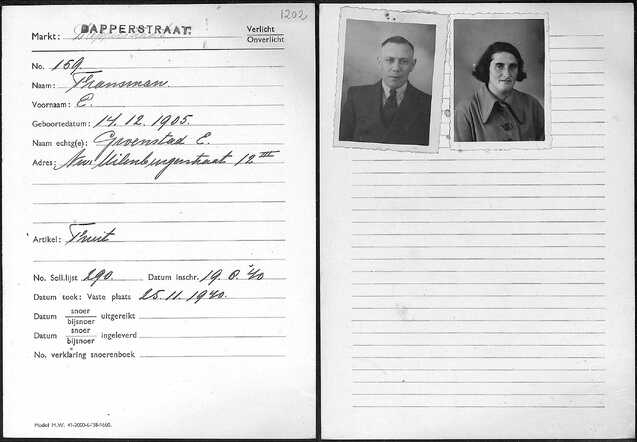 1202
Markt: DAPPERSTRAAT. Verlicht
Onverlicht
No. 159
Naam: Fransman.
Voornaam: E.
Geboortedatum: 14.12.1905.
Naam echtg(e): Groenstad E.
Adres: Nw. Uilenburgerstraat 12 III
Artikel: Fruit
No. Soll.lijst 290. Datum inschr. 19.6.'40
Datum toek: Vaste plaats 25.11.1940.
Datum snoer uitgereikt
bijsnoer
Datum snoer ingeleverd
bijsnoer
No. verklaring snoerenboek
Model M.W. 41-2000-6-'38-1660.